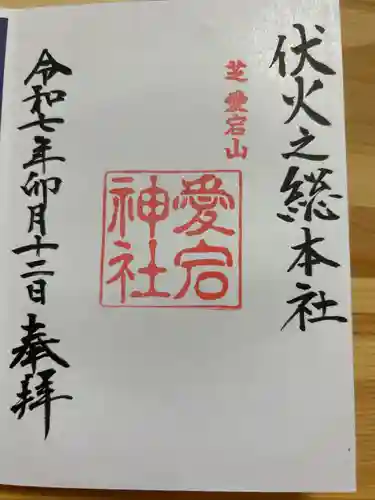 伏火之総本社
芝愛宕山
愛宕
神社
令和七年卯月十二日
奉拝